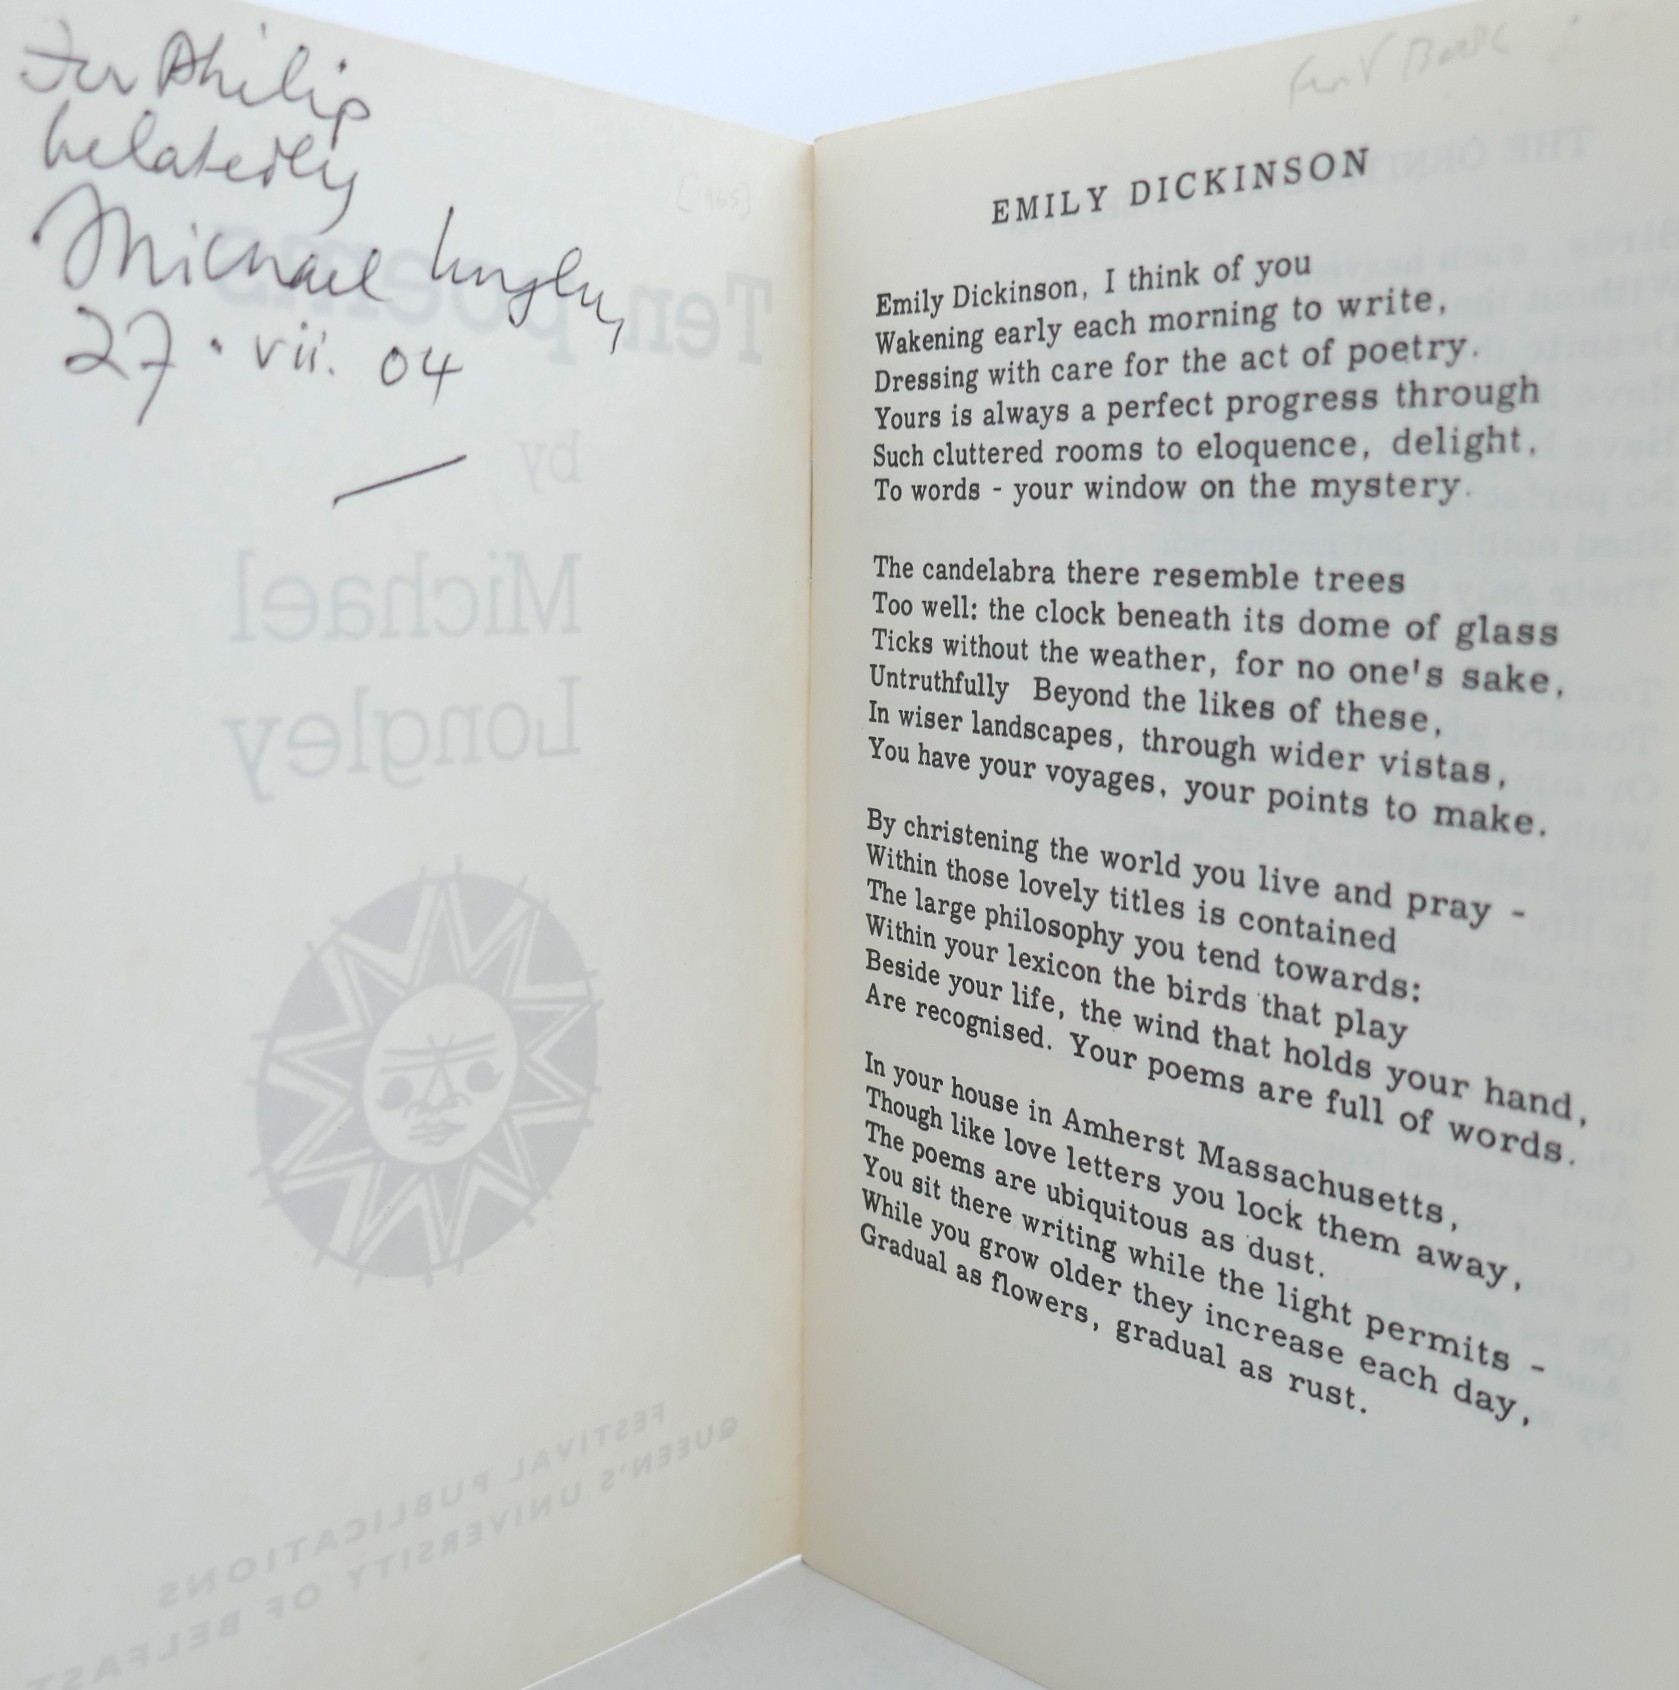 For Philip
belatedly
Michael Longley
27 . vii. 04
[1965]
Ten poems
by
Michael
Longley
FESTIVAL PUBLICATIONS
QUEEN'S UNIVERSITY OF BELFAST
First Book
EMILY DICKINSON
Emily Dickinson, I think of you
Wakening early each morning to write,
Dressing with care for the act of poetry.
Yours is always a perfect progress through
Such cluttered rooms to eloquence, delight,
To words - your window on the mystery.
The candelabra there resemble trees
Too well: the clock beneath its dome of glass
Ticks without the weather, for no one's sake,
Untruthfully  Beyond the likes of these,
In wiser landscapes, through wider vistas,
You have your voyages, your points to make.
By christening the world you live and pray -
Within those lovely titles is contained
The large philosophy you tend towards:
Within your lexicon the birds that play
Beside your life, the wind that holds your hand,
Are recognised. Your poems are full of words.
In your house in Amherst Massachusetts,
Though like love letters you lock them away,
The poems are ubiquitous as dust.
You sit there writing while the light permits -
While you grow older they increase each day,
Gradual as flowers, gradual as rust.